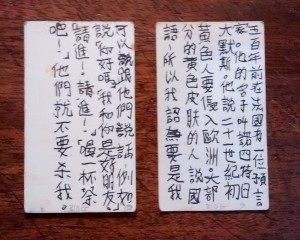 五百年前在法國有一位預言
家。他的名子叫諾四特日
大默斯。他說二十一世紀初
黃色人要侵入歐洲。大部
分的黃色皮膚的人說國
語。所以我認為要是我
可以說跟他們說話。例如
說「你好嗎。我和你是好朋友。
請進!請進!」「喝一杯茶
吧!」他們就不要殺我。